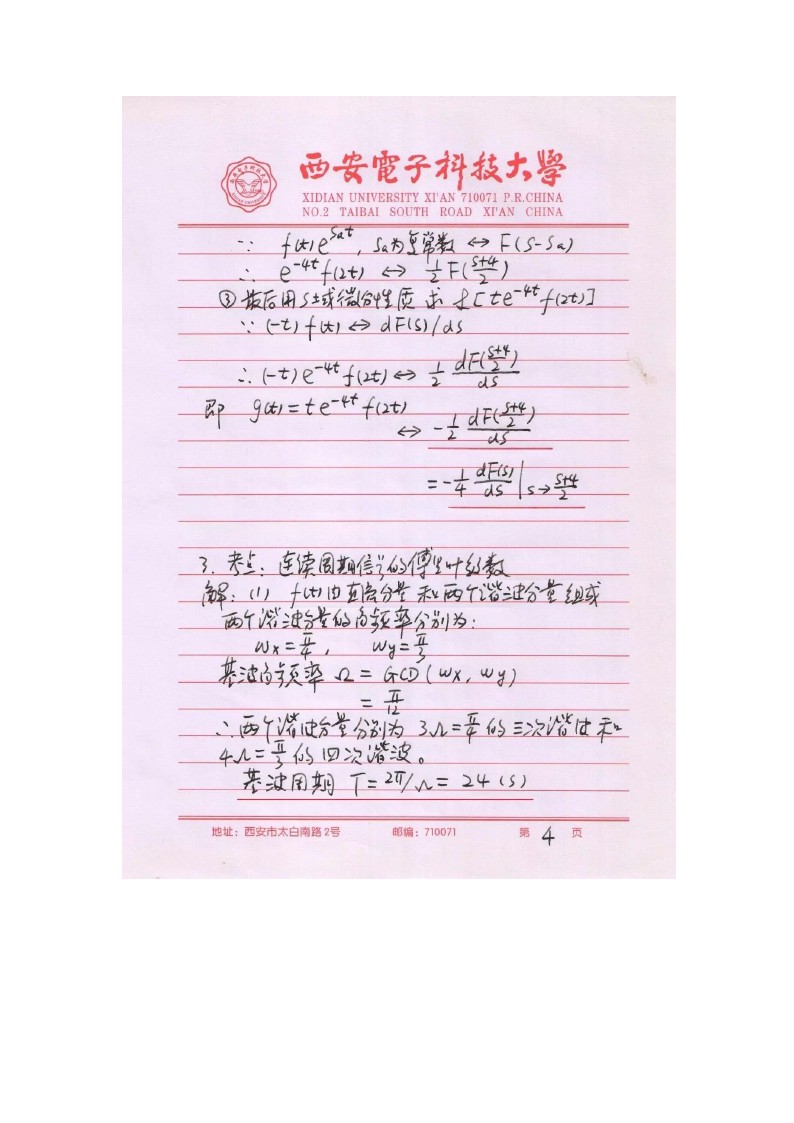 西安電子科技大學
XIDIAN UNIVERSITY XI'AN 710071 P.R.CHINA
NO.2 TAIBAI SOUTH ROAD XI'AN CHINA
∵ f(t)e^{Sat}, Sa为复常数 ↔ F(S-Sa)
∴ e^{-4t}f(2t) ↔ 1/2 F((S+4)/2)
③ 最后用S域微分性质 求 ℒ[te^{-4t}f(2t)]
∵ (-t)f(t) ↔ dF(s)/ds
∴ (-t)e^{-4t}f(2t) ↔ 1/2 dF((S+4)/2)/ds
即 g(t)=te^{-4t}f(2t)
↔ -1/2 dF((S+4)/2)/ds
= -1/4 dF(s)/ds |s→(S+4)/2
3. 考点: 连续周期信号的傅里叶级数
解: (1) f(t)由直流分量和两个谐波分量组成
两个谐波分量的角频率分别为:
ωx=π/4, ωy=π/3
基波角频率 Ω = GCD(ωx, ωy)
= π/12
∴ 两个谐波分量分别为 3Ω=π/4 的三次谐波和
4Ω=π/3 的四次谐波。
基波周期 T=2π/Ω= 24 (S)
地址: 西安市太白南路2号 邮编: 710071 第 4 页